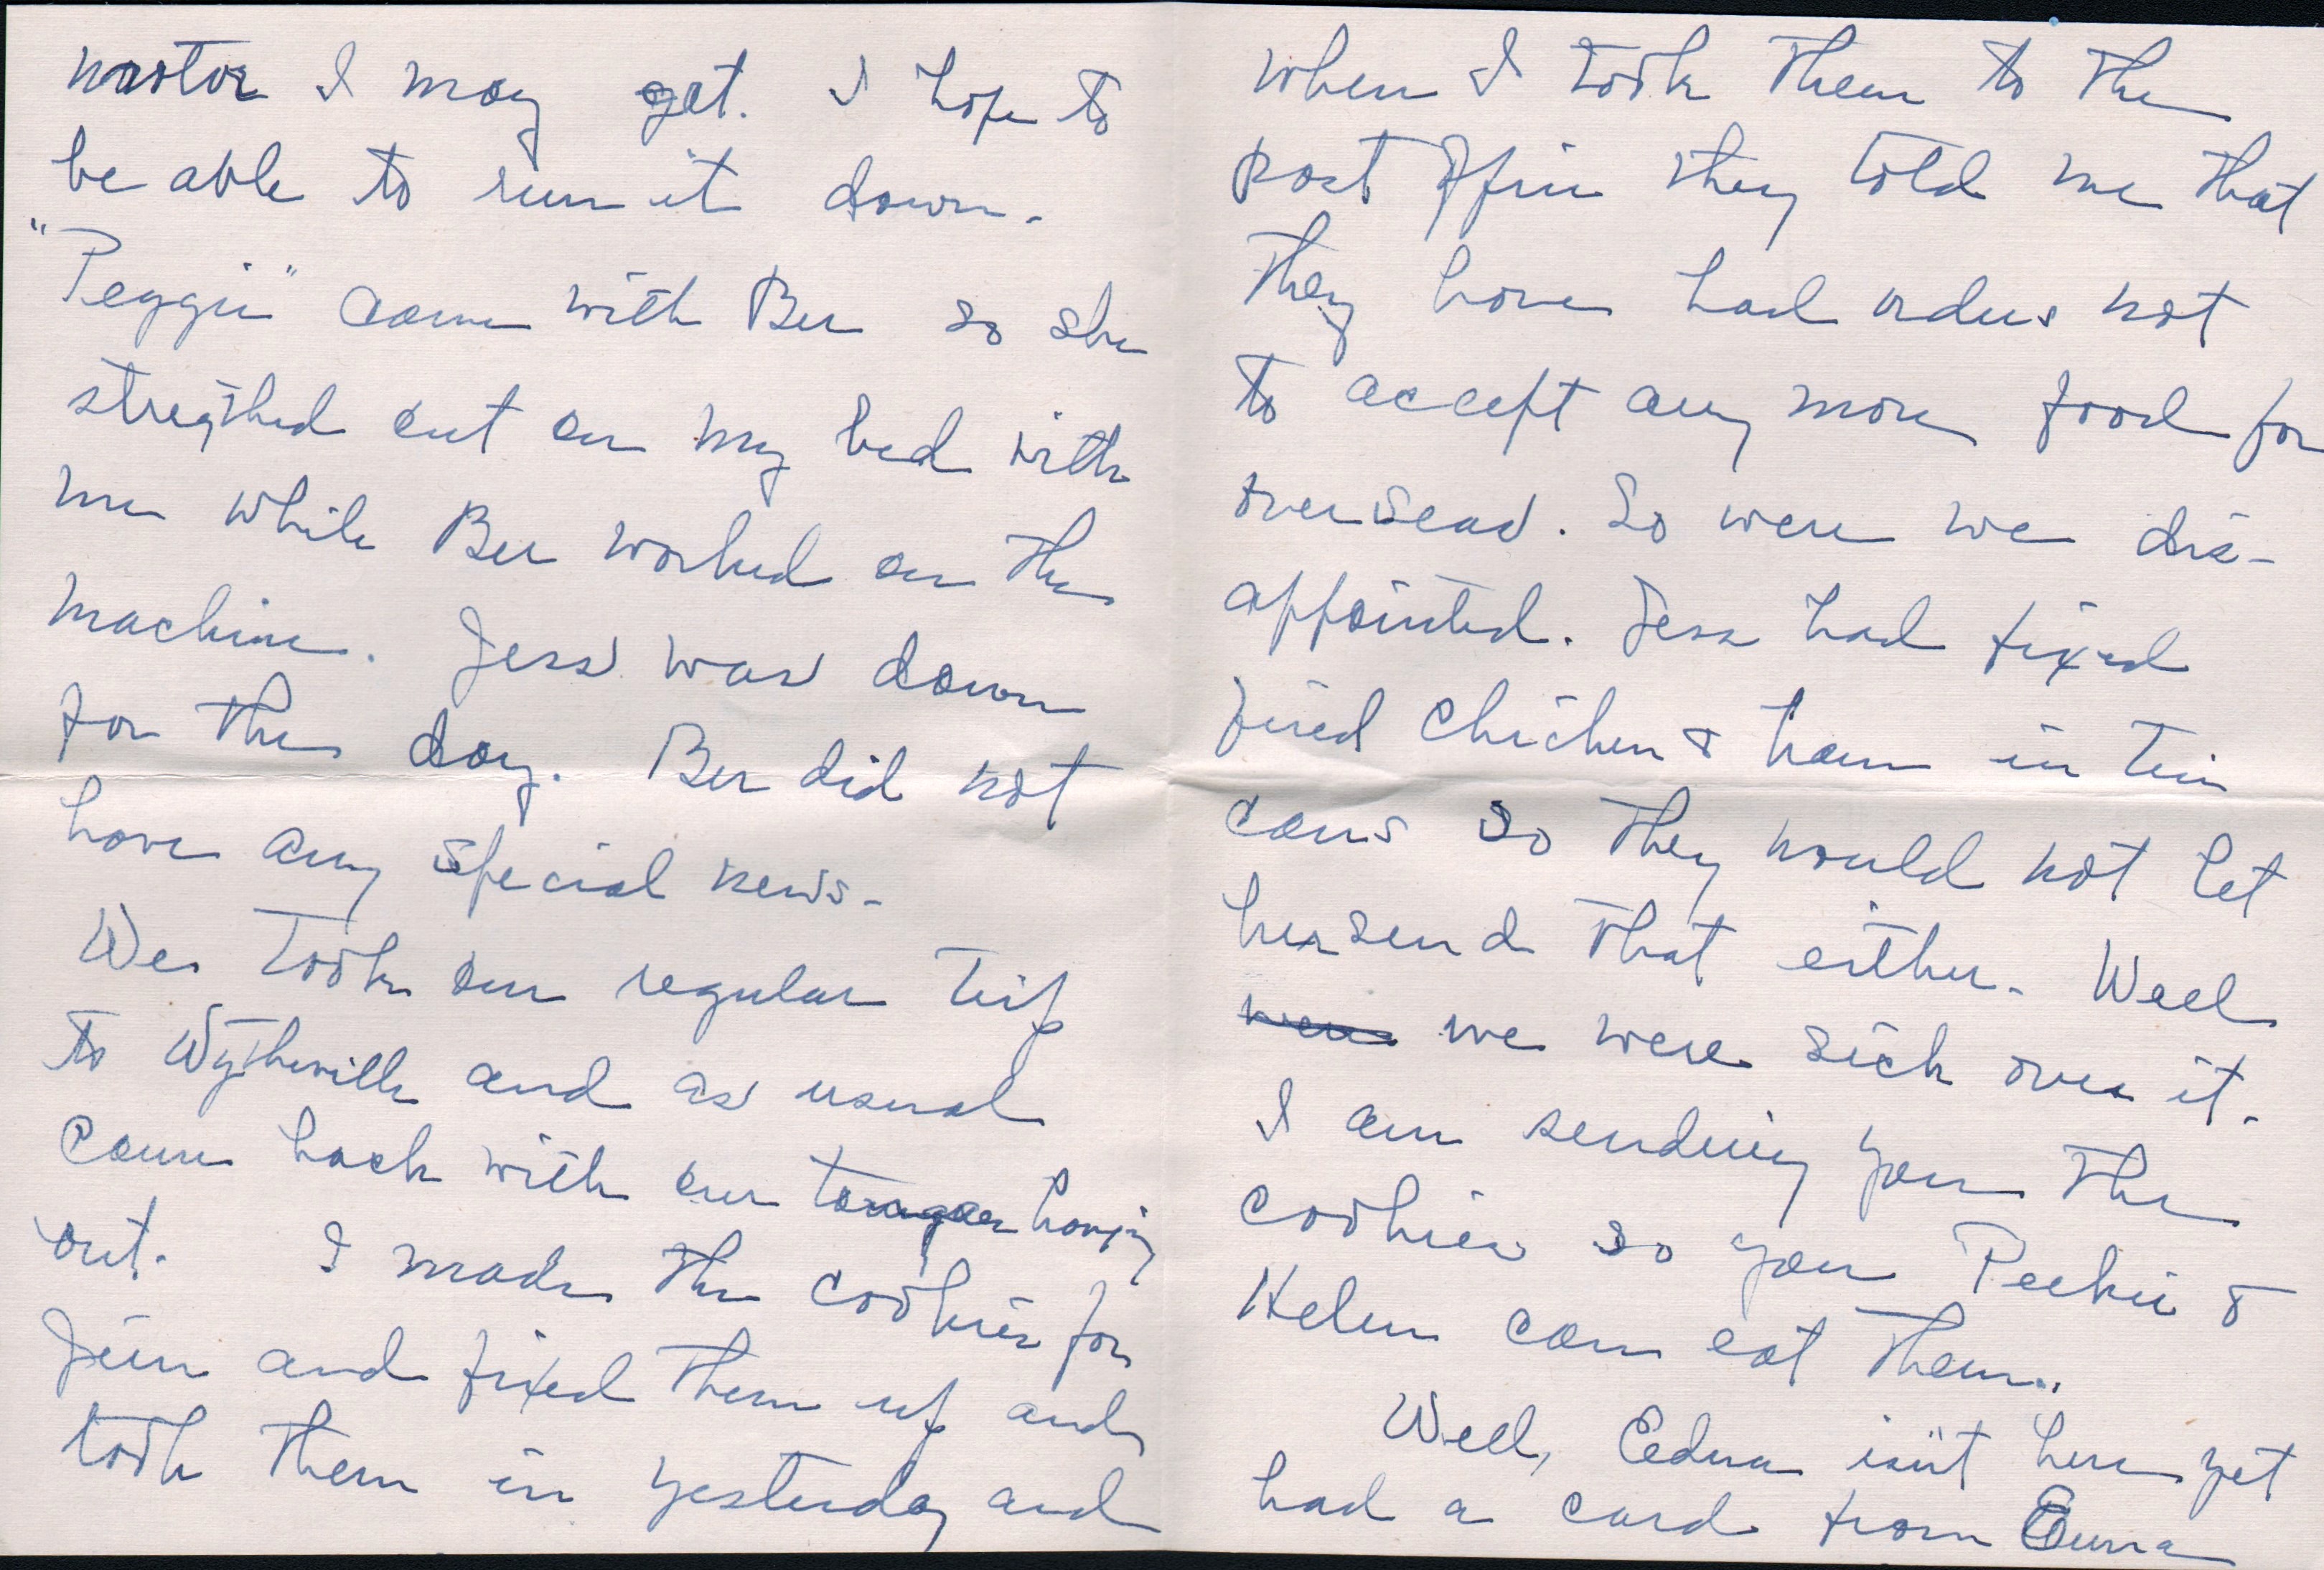 nastor I may get. I hope to
be able to run it down.
"Peggie" came with Bee so she
stregthed out on my bed with
me while Bee worked on the
machine. Jess was down
for the day. Bee did not
have any special news-
We took our regular trip
to Wytheville and as usual
came back with our tongues hanging
out. I made the cookies for
Jim and fixed them up and
took them in yesterday and
when I took them to the
post office they told me that
they have had orders not
to accept any more food for
overseas. So were we dis-
appointed. Jess had fixed
fried chicken & ham in tin
cans so they would not let
her send that either. Well
we were sick over it.
I am sending you the
cookies so you Peekie &
Helen can eat them.
Well, Eedna isn't here yet
had a card from Emma